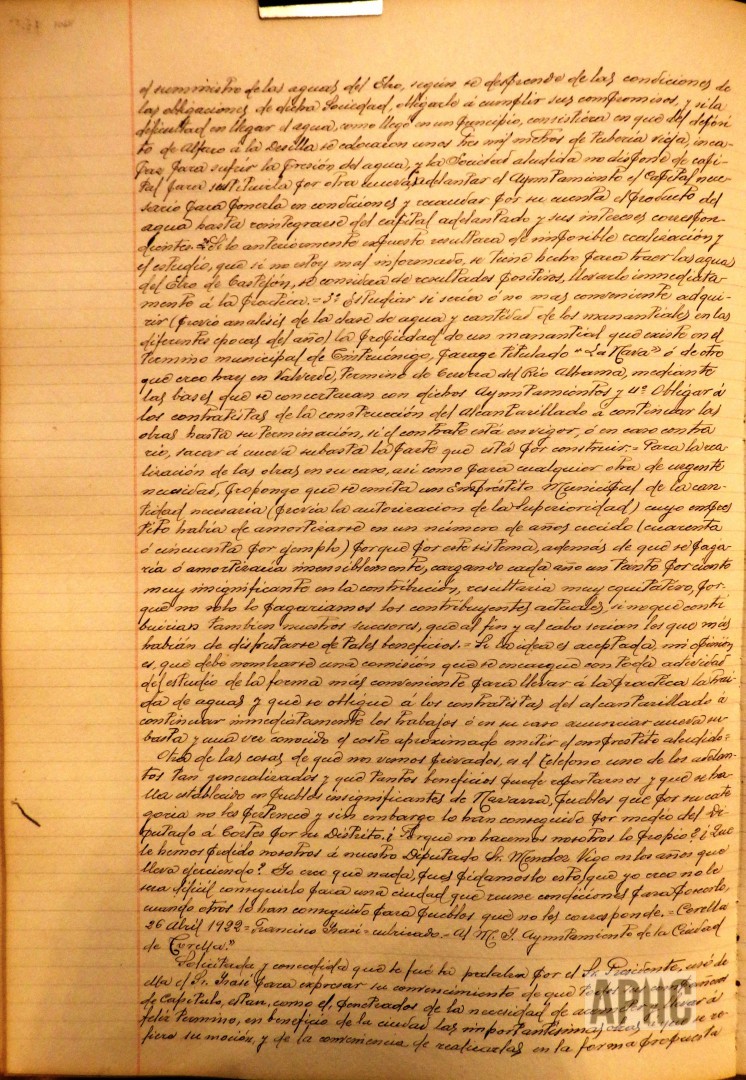 el suministro de las aguas del Ebro, según se desprende de las condiciones de
las obligaciones de dicha Sociedad, obligarle á cumplir sus compromisos, y si la
dificultad en llegar el agua, como llegó en un principio, consistiera en que del depósi-
to de Alfaro á la Desilla se colocaron unos tres mil metros de tubería vieja, inca-
paz para sufrir la presión del agua, y la Sociedad aludida no dispone de capi-
tal para sustituirla por otra nueva, adelantar el Ayuntamiento el Capital nece-
sario para ponerla en condiciones y recaudar por su cuenta el producto del
agua hasta reintegrarse del capital adelantado y sus intereses correspon-
dientes. = 2º Si lo anteriormente expuesto resultara de imposible realización y
el estudio, que si no estoy mal informado, se tiene hecho para traer las aguas
del Ebro de Castejón, se considera de resultados positivos, llevarlo inmediata-
mente á la práctica. = 3º Estudiar si sería ó no mas conveniente adqui-
rir (previo analisis de la clase de agua y cantidad de los manantiales en las
diferentes epocas del año) la propiedad de un manantial que existe en el
termino municipal de Cintruénigo, parage titulado "La Nava" ó de otro
que creo hay en Valverde, termino de Cervera del Río Alhama, mediante
las bases que se concertaran con dichos Ayuntamientos y 4º Obligar á
los contratistas de la construcción del Alcantarillado á continuar las
obras hasta su terminación, si el contrato está en vigor, ó en caso contra
rio, sacar á nueva subasta la parte que está por construir. = Para la rea-
lización de las obras en su caso, asi como para cualquier otra de urgente
necesidad, propongo que se emita un Empréstito Municipal de la can-
tidad necesaria (previa la autorización de la Superioridad) cuyo emprés
tito había de amortizarse en un número de años crecido (cuarenta
ó cincuenta por ejemplo) porque por este sistema, además de que se paga-
ría ó amortizaría insensiblemente, cargando cada año un tanto por ciento
muy insignificante en la contribución, resultaría muy equitativo, por-
que no solo lo pagaríamos los contribuyentes actuales, sino que contri
buirian tambien nuestros sucesores, que al fin y al cabo serían los que más
habrían de disfrutarse de tales beneficios. = Si la idea es aceptada, mi opinión
es, que debe nombrarse una comisión que se encargue con toda actividad
del estudio de la forma más conveniente para llevar á la práctica la traí
da de aguas y que se obligue á los contratistas del alcantarillado á
continuar inmediatamente los trabajos ó en su caso anunciar nueva su
basta y una vez conocido el costo aproximado emitir el empréstito aludido =
Otra de las cosas de que nos vemos privados, es el teléfono uno de los adelan-
tos tan generalizados y que tantos beneficios puede reportarnos y que se ha-
lla establecido en pueblos insignificantes de Navarra, pueblos que por su cate
goria no les pertenece y sin embargo lo han conseguido por medio del Di-
putado á Cortes por su Distrito. ¿ Porqué no hacemos nosotros lo propio? ¿Qué
le hemos pedido nosotros á nuestro Diputado Sr. Mendez Vigo en los años que
lleva ejerciendo? Yo creo que nada, pues pidamosle esto, que yo creo no le
sea difícil conseguirlo para una ciudad que reune condiciones para poseerlo,
cuando otros lo han conseguido para pueblos que no les corresponde. = Corella
26 Abril 1922 = Francisco = rubricado. = Al M. I. Ayuntamiento de la Ciudad
de Corella."
Solicitada y concedida que le fué la palabra por el Sr. Presidente, usó de
ella el Sr. para expresar su convencimiento de que
de Capitulo, estan, como el penetrados de la necesidad de á
feliz termino, en beneficio de la ciudad las importantísimas obras á que se re-
fiere su moción, y de la conveniencia de realizarlas en la forma propuesta
APHC